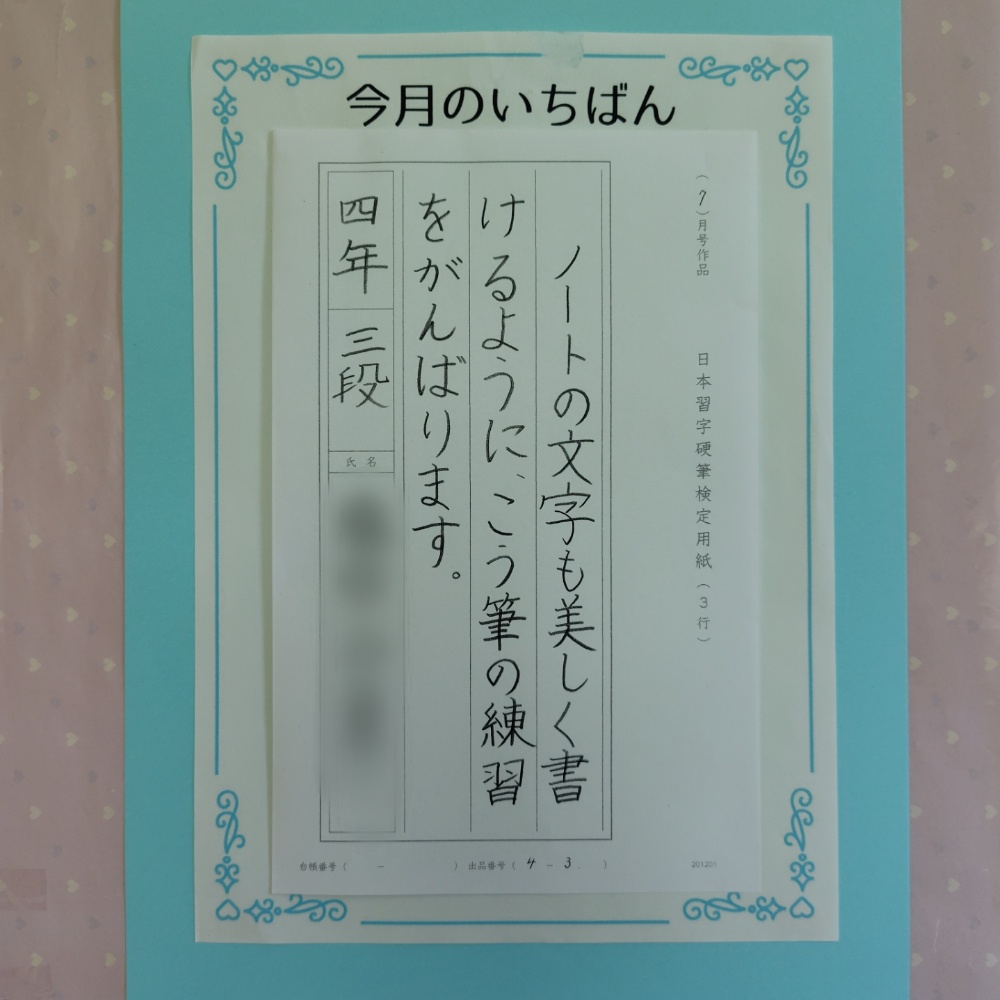 今月のいちばん
(7)月号作品 日本習字硬筆検定用紙(3行)
ノートの文字も美しく書
けるように、こう筆の練習
をがんばります。
四年 三段 氏名
台帳番号( - ) 出品番号( 4 - 3 . )
201201